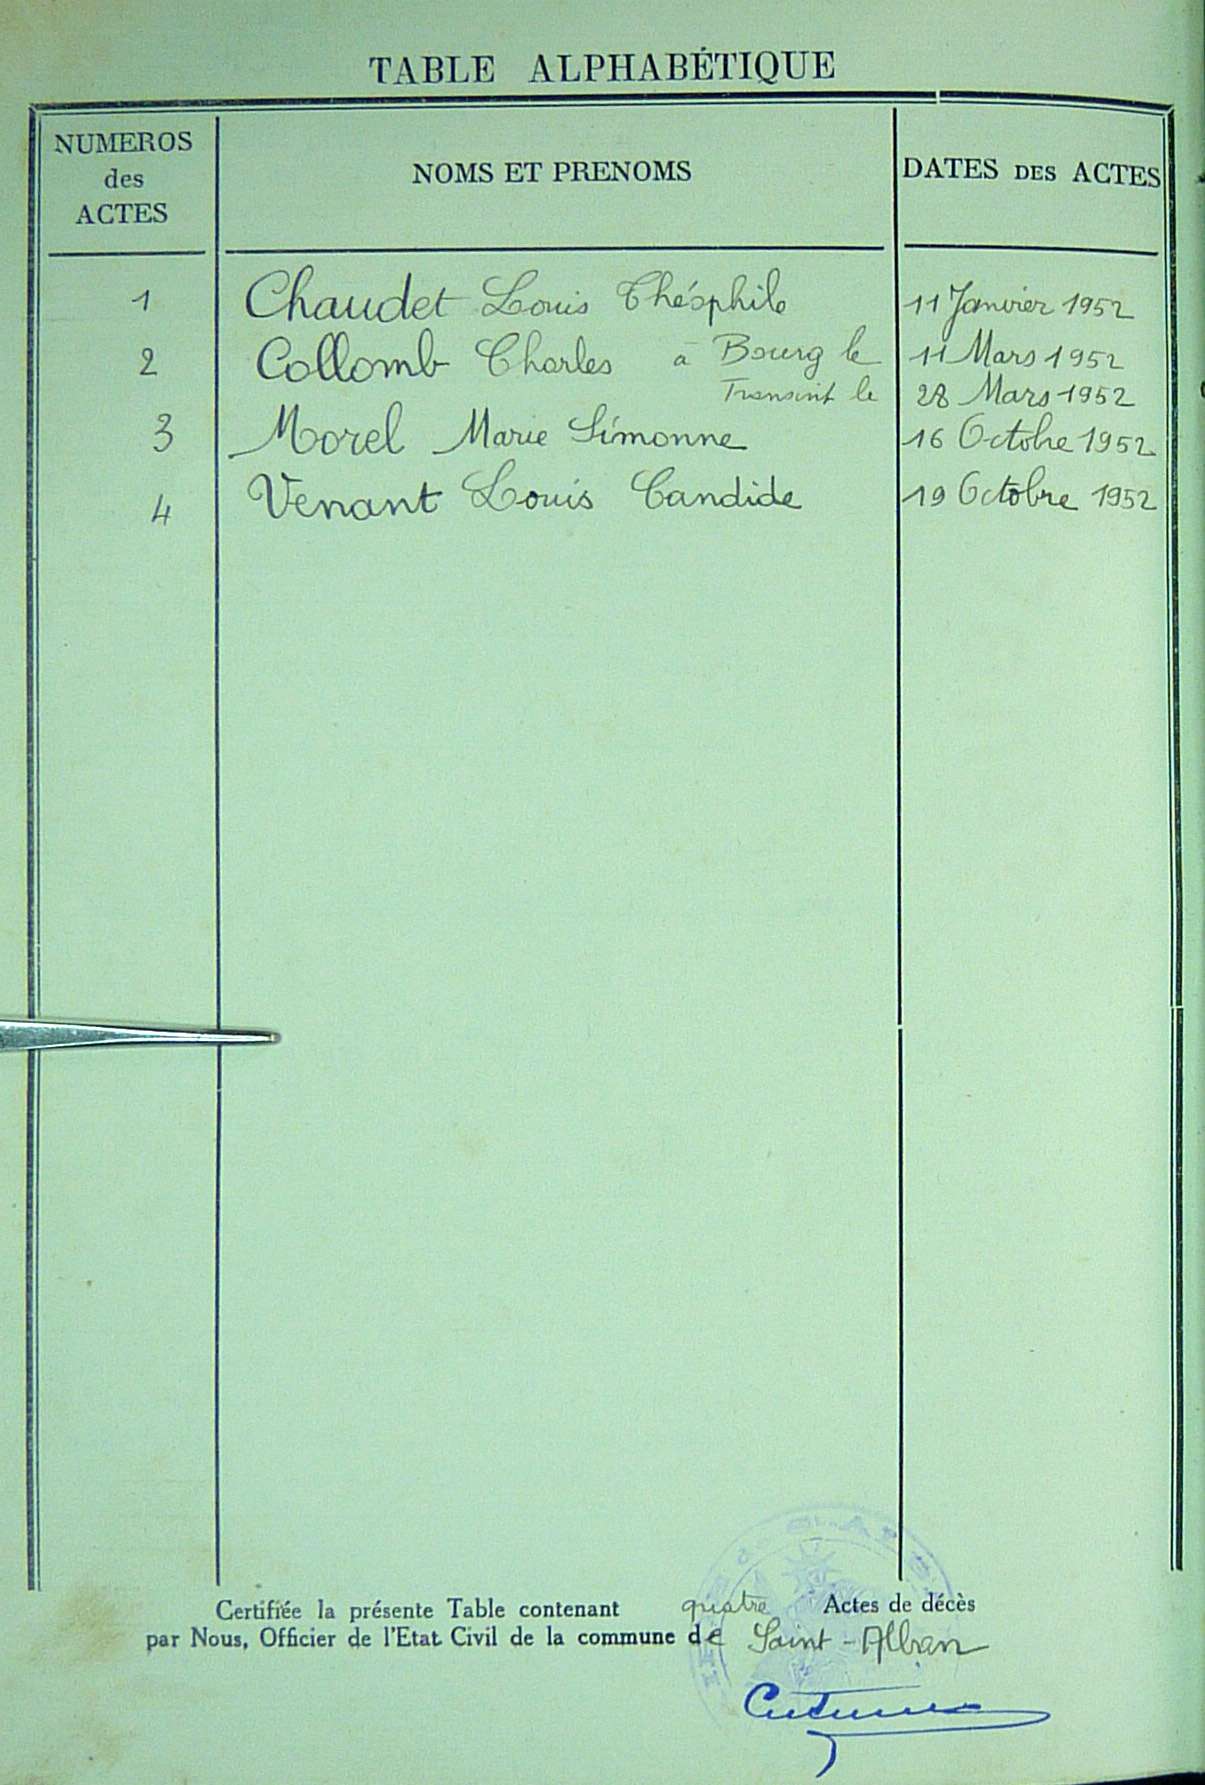 TABLE ALPHABÉTIQUE
NUMEROS des ACTES
NOMS ET PRENOMS
DATES DES ACTES
1 Chaudet Louis Théophile 11 Janvier 1952
2 Collomb Charles à Bourg le 11 Mars 1952
Transcrit le 28 Mars 1952
3 Morel Marie Simonne 16 Octobre 1952
4 Venant Louis Candide 19 Octobre 1952
Certifiée la présente Table contenant quatre Actes de décès
par Nous, Officier de l'Etat Civil de la commune de Saint-Alban